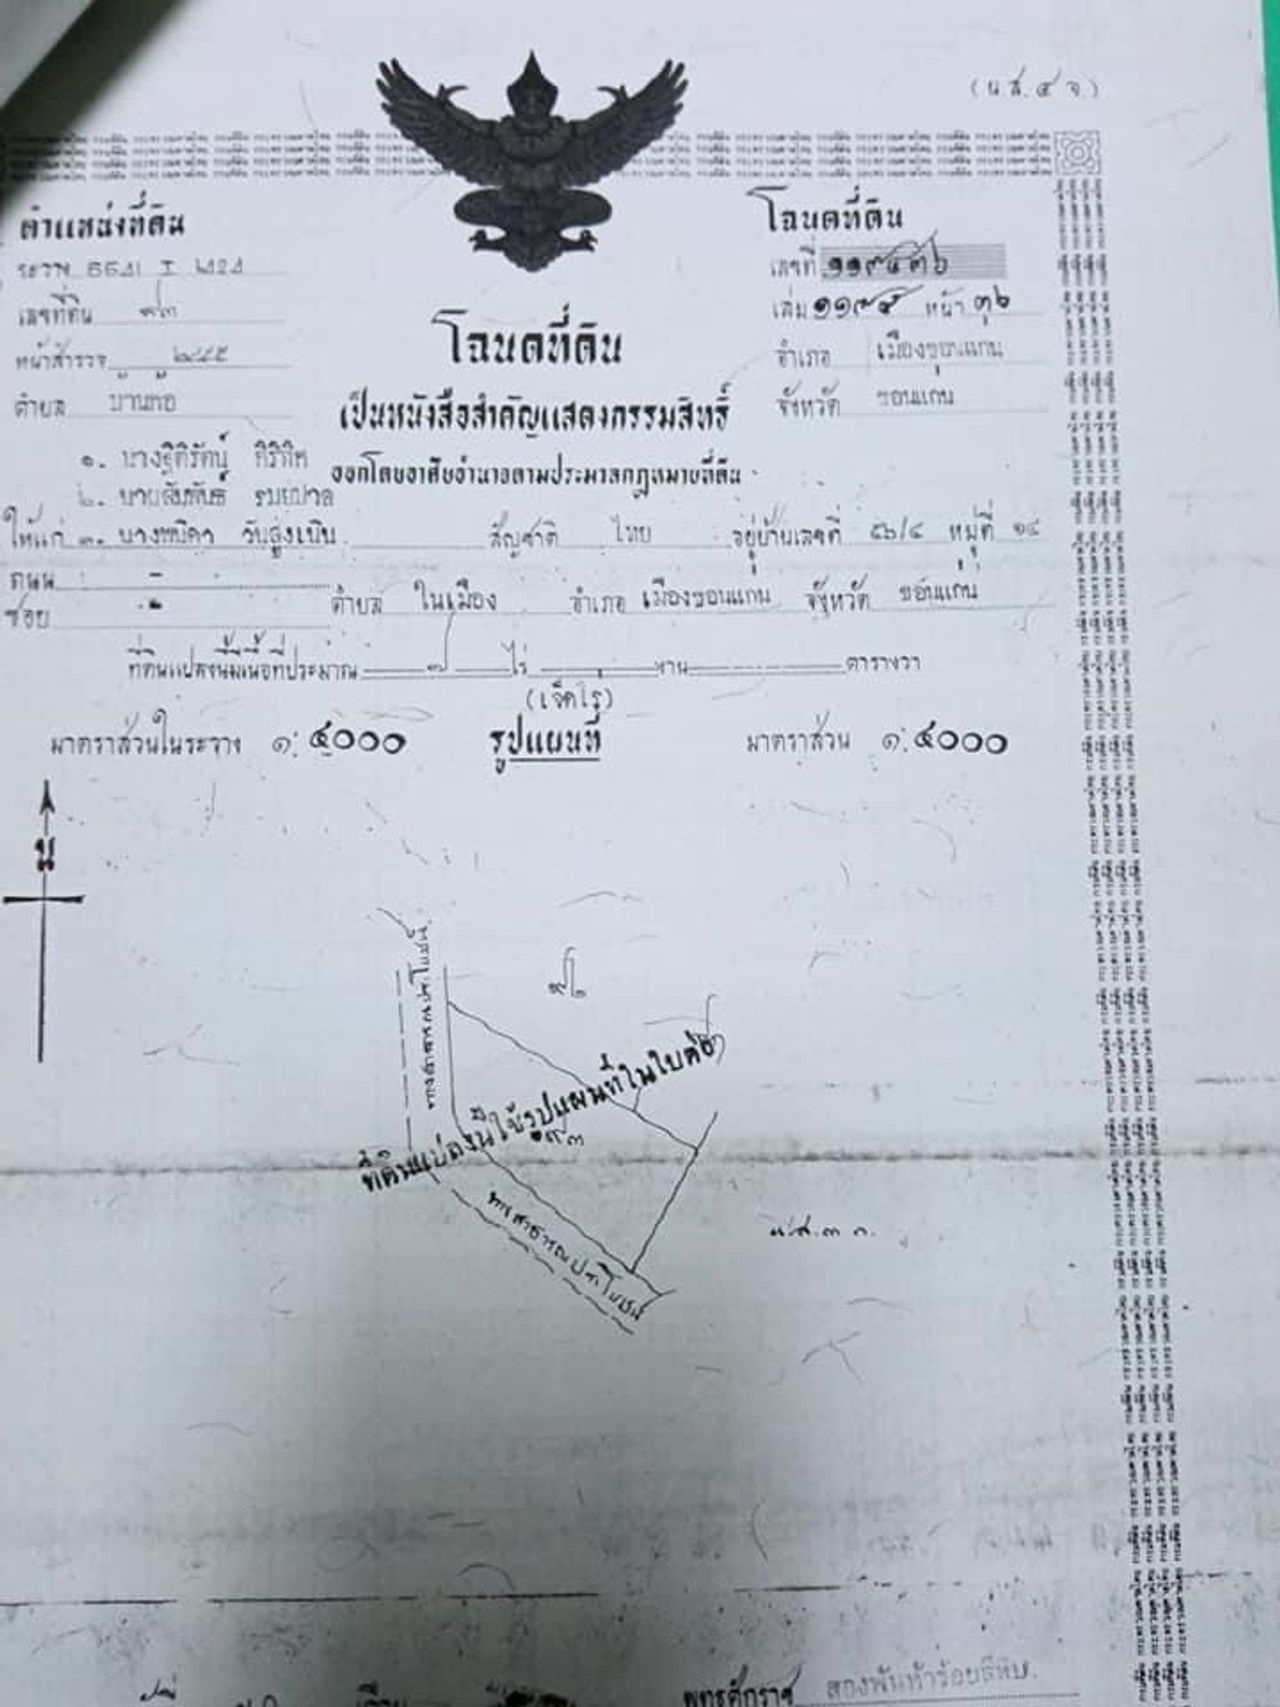 (น.ส.๔ จ)
ตำแหน่งที่ดิน
ระวาง ๕๕๔๑ I
เลขที่ดิน ๙๓
หน้าสำรวจ
ตำบล บ้านค้อ
โฉนดที่ดิน
เลขที่ ๑๑๙๔๓๖
เล่ม ๑๑๙๕ หน้า ๓๖
อำเภอ เมืองขอนแก่น
จังหวัด ขอนแก่น
โฉนดที่ดิน
เป็นหนังสือสำคัญแสดงกรรมสิทธิ์
ออกโดยอาศัยอำนาจตามประมวลกฎหมายที่ดิน
๑. นางฐิติรัตน์
๒. นายสัมพันธ์
ให้แก่ ๓. วันสูงเนิน สัญชาติ ไทย อยู่บ้านเลขที่ ๕๖/๔ หมู่ที่ ๑๔
ถนน -
ซอย - ตำบล ในเมือง อำเภอ เมืองขอนแก่น จังหวัด ขอนแก่น
ที่ดินแปลงนี้มีเนื้อที่ประมาณ ๗ ไร่ - งาน - ตารางวา
(เจ็ดไร่)
มาตราส่วนในระวาง ๑:๔๐๐๐ รูปแผนที่ มาตราส่วน ๑:๔๐๐๐
น
ทางสาธารณประโยชน์
๙๒
ที่ดินแปลงนี้ใช้รูปแผนที่ในใบต่อ
๙๓
ทางสาธารณประโยชน์
น.ส.๓ ก.
พุทธศักราช สองพันห้าร้อยสี่สิบ